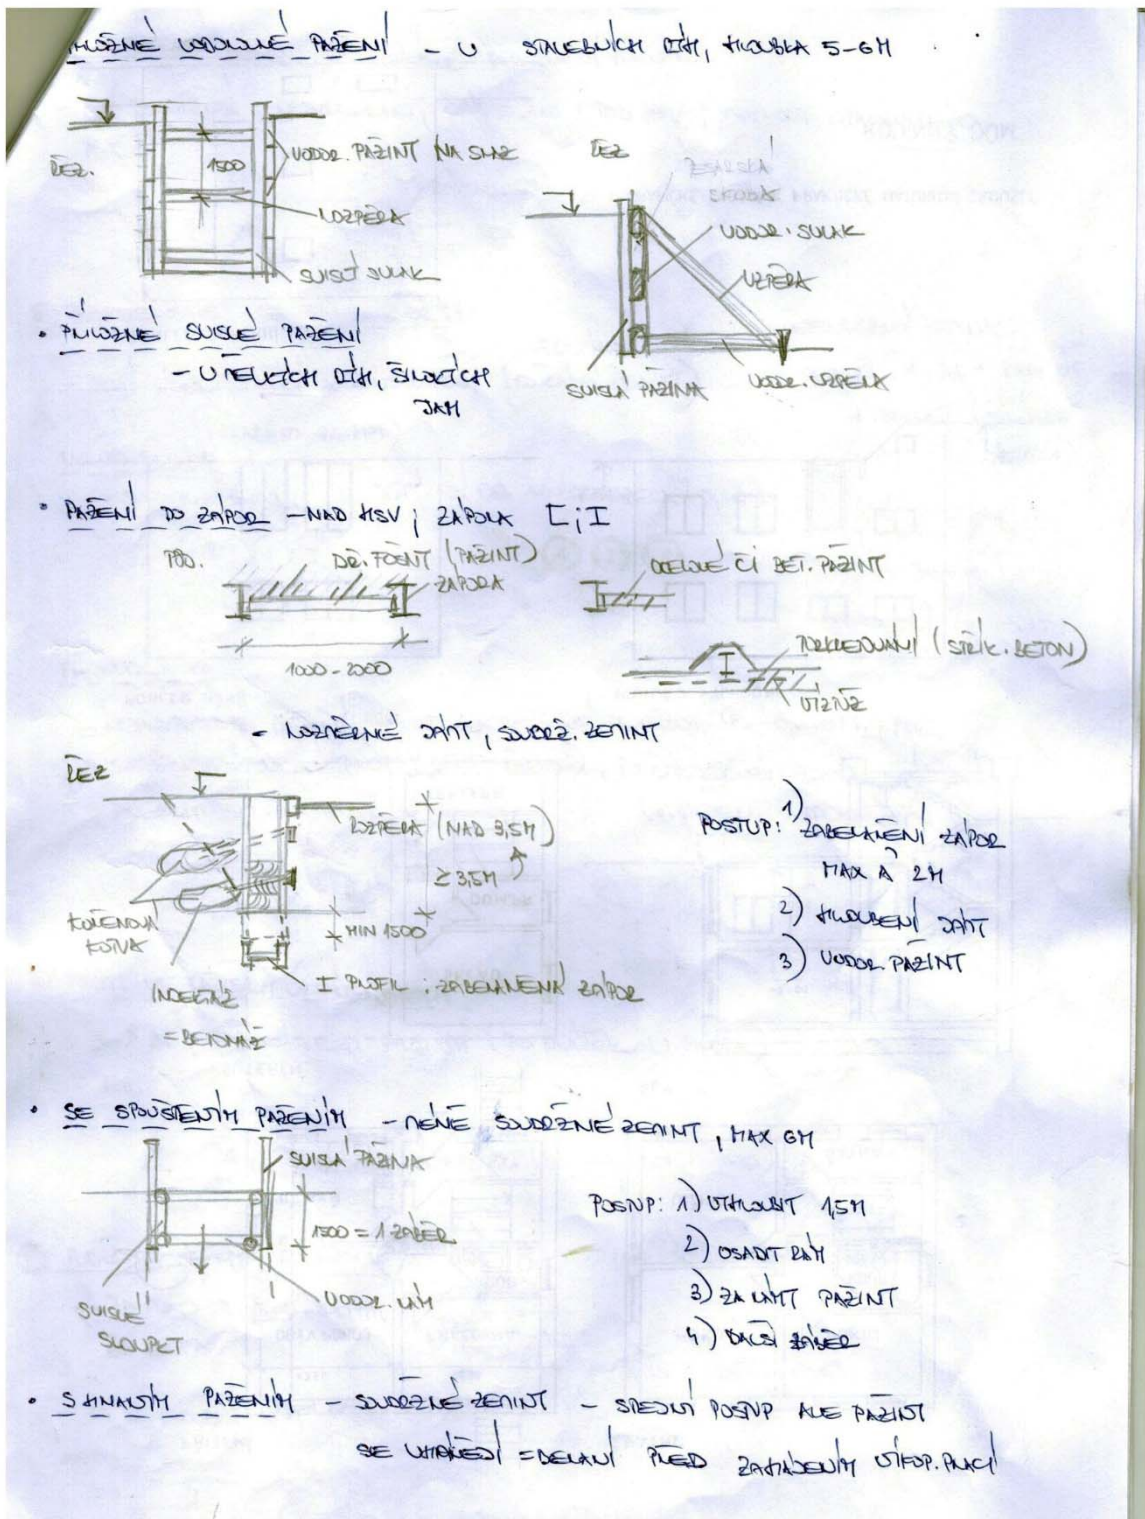 VODOROVNÉ PAŽENÍ - U STAVEBNÍCH RÝH, HLOUBKA 5-6M
ŘEZ.
1500
VODOR. PAŽINY NA SRAZ
ROZPĚRA
SVISLÝ SVLAK
ŘEZ
VODOR. SVLAK
VZPĚRA
SVISLÁ PAŽINA
VODOR. VZPĚRA
• PŘÍLOŽNÉ SVISLÉ PAŽENÍ
- U VELKÝCH RÝH, ŠIROKÝCH
JAM
• PAŽENÍ DO ZÁPOR - NAD HSV; ZÁPORA [; I
PŮD.
DŘ. FOŠNY (PAŽINY)
ZÁPORA
1000-2000
OCELOVÉ ČI BET. PAŽINY
TORKRETOVÁNÍ (STŘÍK. BETON)
VÝZTUŽ
- ROZMĚRNÉ JÁMY, SOUDRŽ. ZEMINY
ŘEZ
ROZPĚRA (NAD 3,5M)
≥ 3,5M
MIN 1500
KOŘENOVÁ
KOTVA
I PROFIL; ZABERANĚNÁ ZÁPOR
INJEKTÁŽ
= BETONÁŽ
POSTUP: 1) ZABERANĚNÍ ZÁPOR
MAX Á 2M
2) HLOUBENÍ JÁMY
3) VODOR. PAŽINY
• SE SPOUŠTĚNÝM PAŽENÍM - MÉNĚ SOUDRŽNÉ ZEMINY, MAX 6M
SVISLÁ PAŽINA
1500 = 1 ZÁBĚR
VODOR. RÁM
SVISLÉ
SLOUPKY
POSTUP: 1) VYHLOUBIT 1,5M
2) OSADIT RÁM
3) ZA RÁMY PAŽINY
4) DALŠÍ ZÁBĚR
• S HNANÝM PAŽENÍM - SOUDRŽNÉ ZEMINY - STEJNÝ POSTUP ALE PAŽINY
SE VHÁNĚJÍ = BERANÍ PŘED ZAHÁJENÍM VÝKOP. PRACÍ